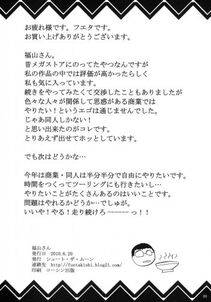 お疲れ様です。フエタです。
お買い上げありがとうございます。
福山さん。
昔メガストアにのってたやつなんですが
私の作品の中では評価が高かったらしく
私も気に入っています。
続きをやってみたくて交渉したこともありましたが
色々な人々が関係して思惑がある商業では
やりたい！というエゴは通じませんでした。
じゃあ同人しかない！
と思い出来たのがコレです。
とりあえず出せてホッとしています。
でも次はどうかな…
今年は商業・同人は半分半分で自由にやりたいです。
時間をつくってツーリングにも行きたいし…
やりたいことがたくさんあるのはいいことです。
問題はやれるかどうか…でしゅが。
いいや！やる！走り続けろ――――っ！！
福山さん
発行日 2010.6.20
発行 シュート・ザ・ムーン
連絡先 http://fuetakishi.blog21.com/
印刷 コーシン出版